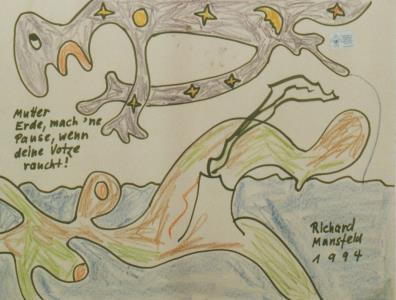 Mutter
Erde, mach 'ne
Pause, wenn
deine Votze
raucht!
Richard
Mansfeld
1994